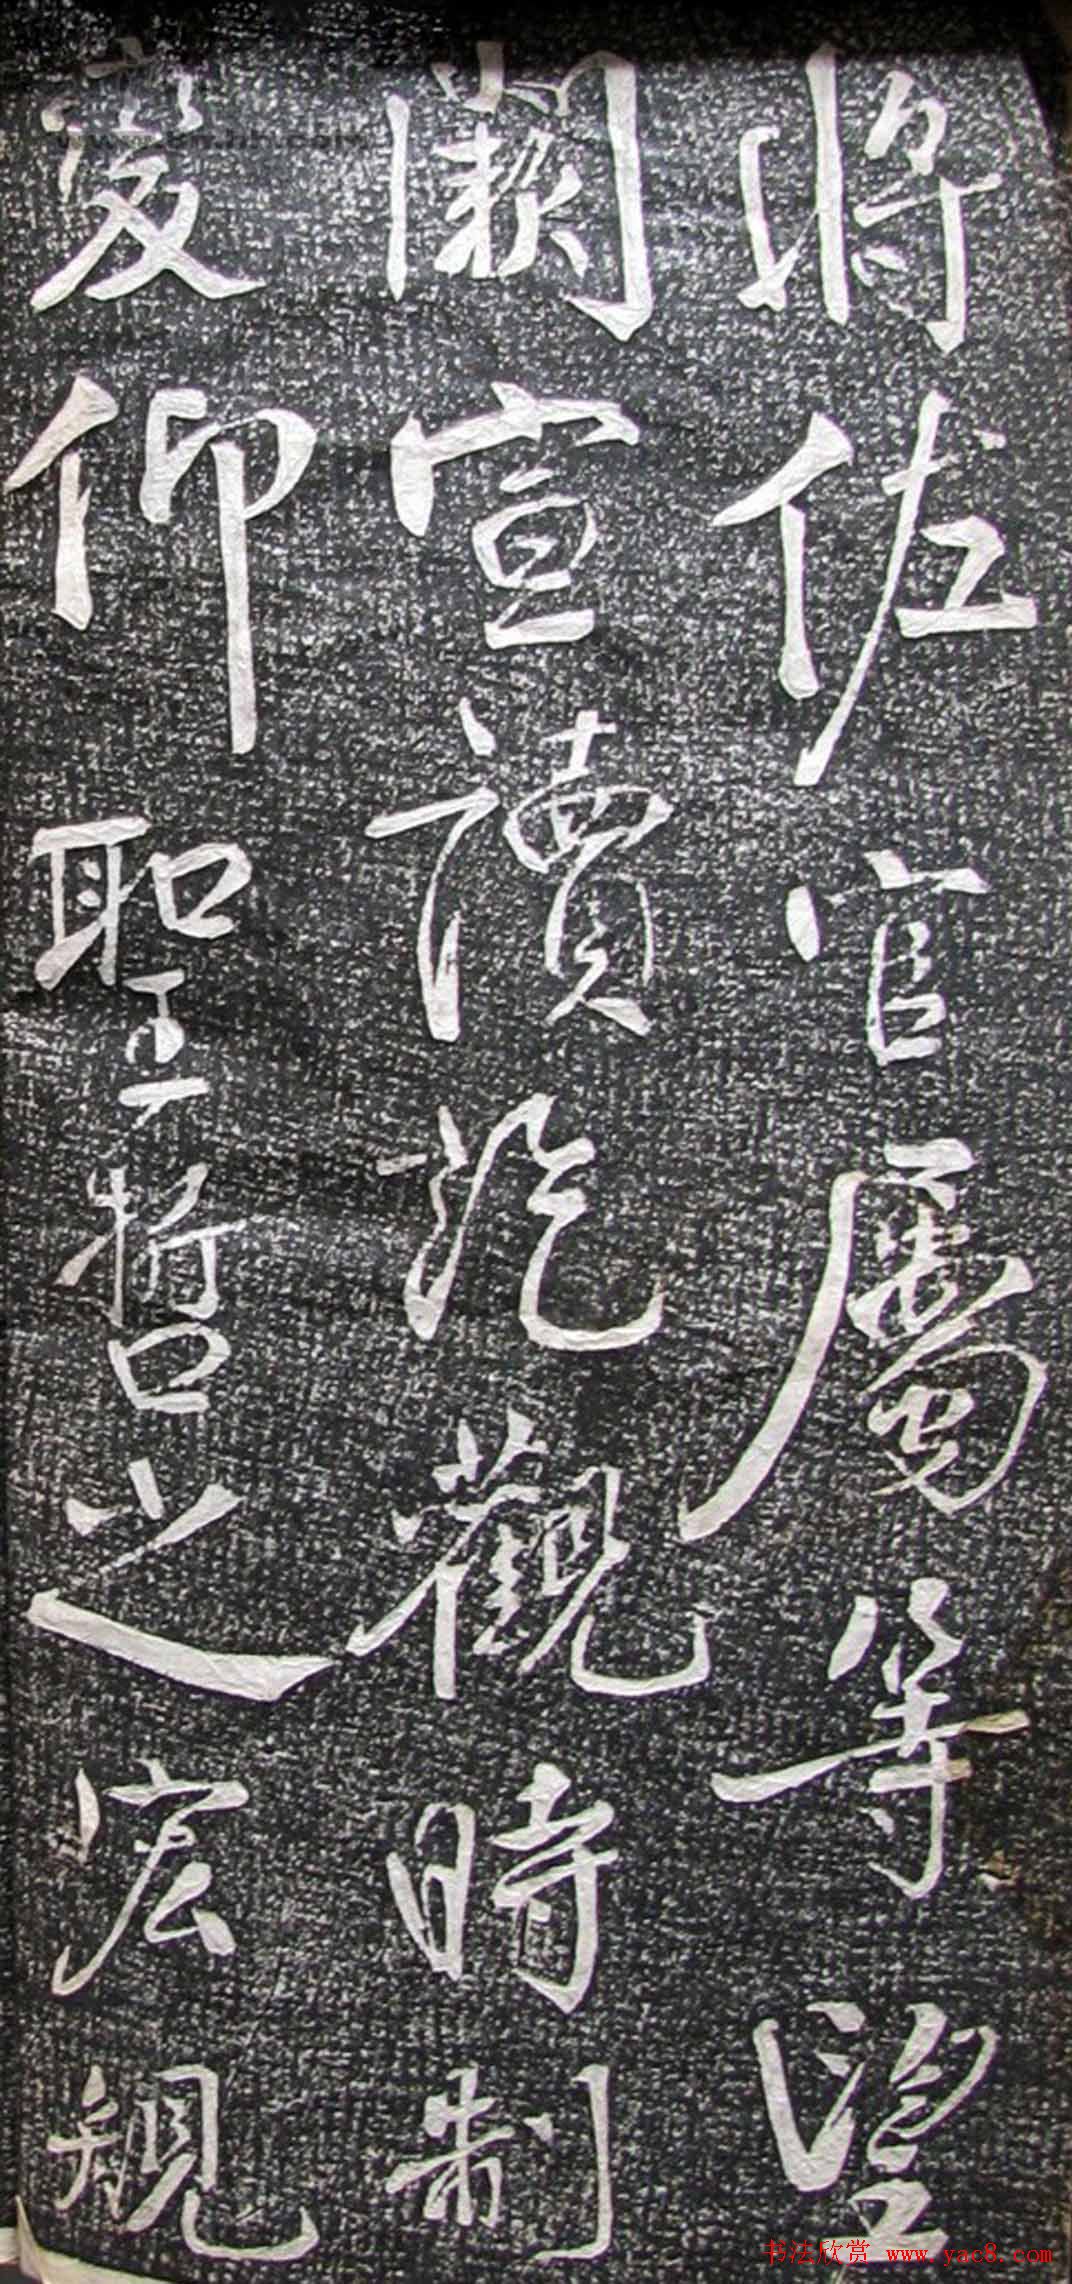 將佐官屬等望
闕宣讀訖觀時制
宴仰聖哲之宏規
书法欣赏 www.yac8.com